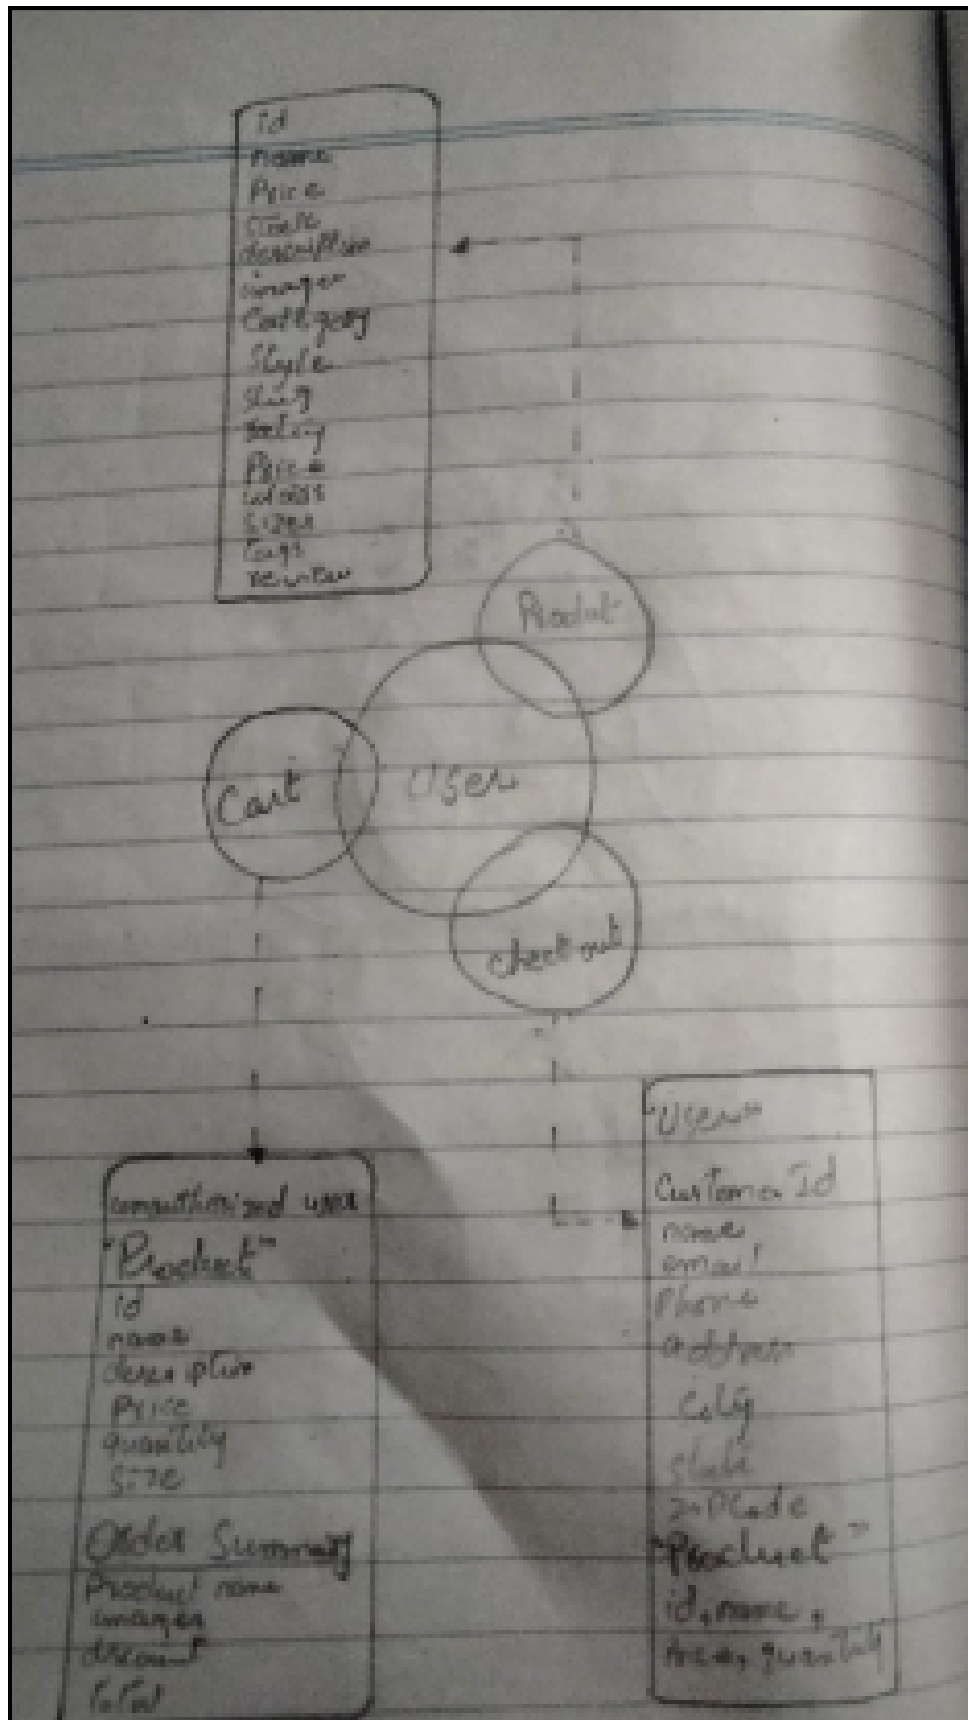 id
name
Price
Stock
description
images
Category
Style
rating
Price
colors
sizes
tags
review
Product
User
Cart
Checkout
unauthorized user
"Product"
id
name
description
Price
quantity
Size
Order Summary
Product name
images
discount
total
"User"
Customer Id
name
email
Phone
address
City
State
zipCode
"Product"
id, name,
Price, quantity